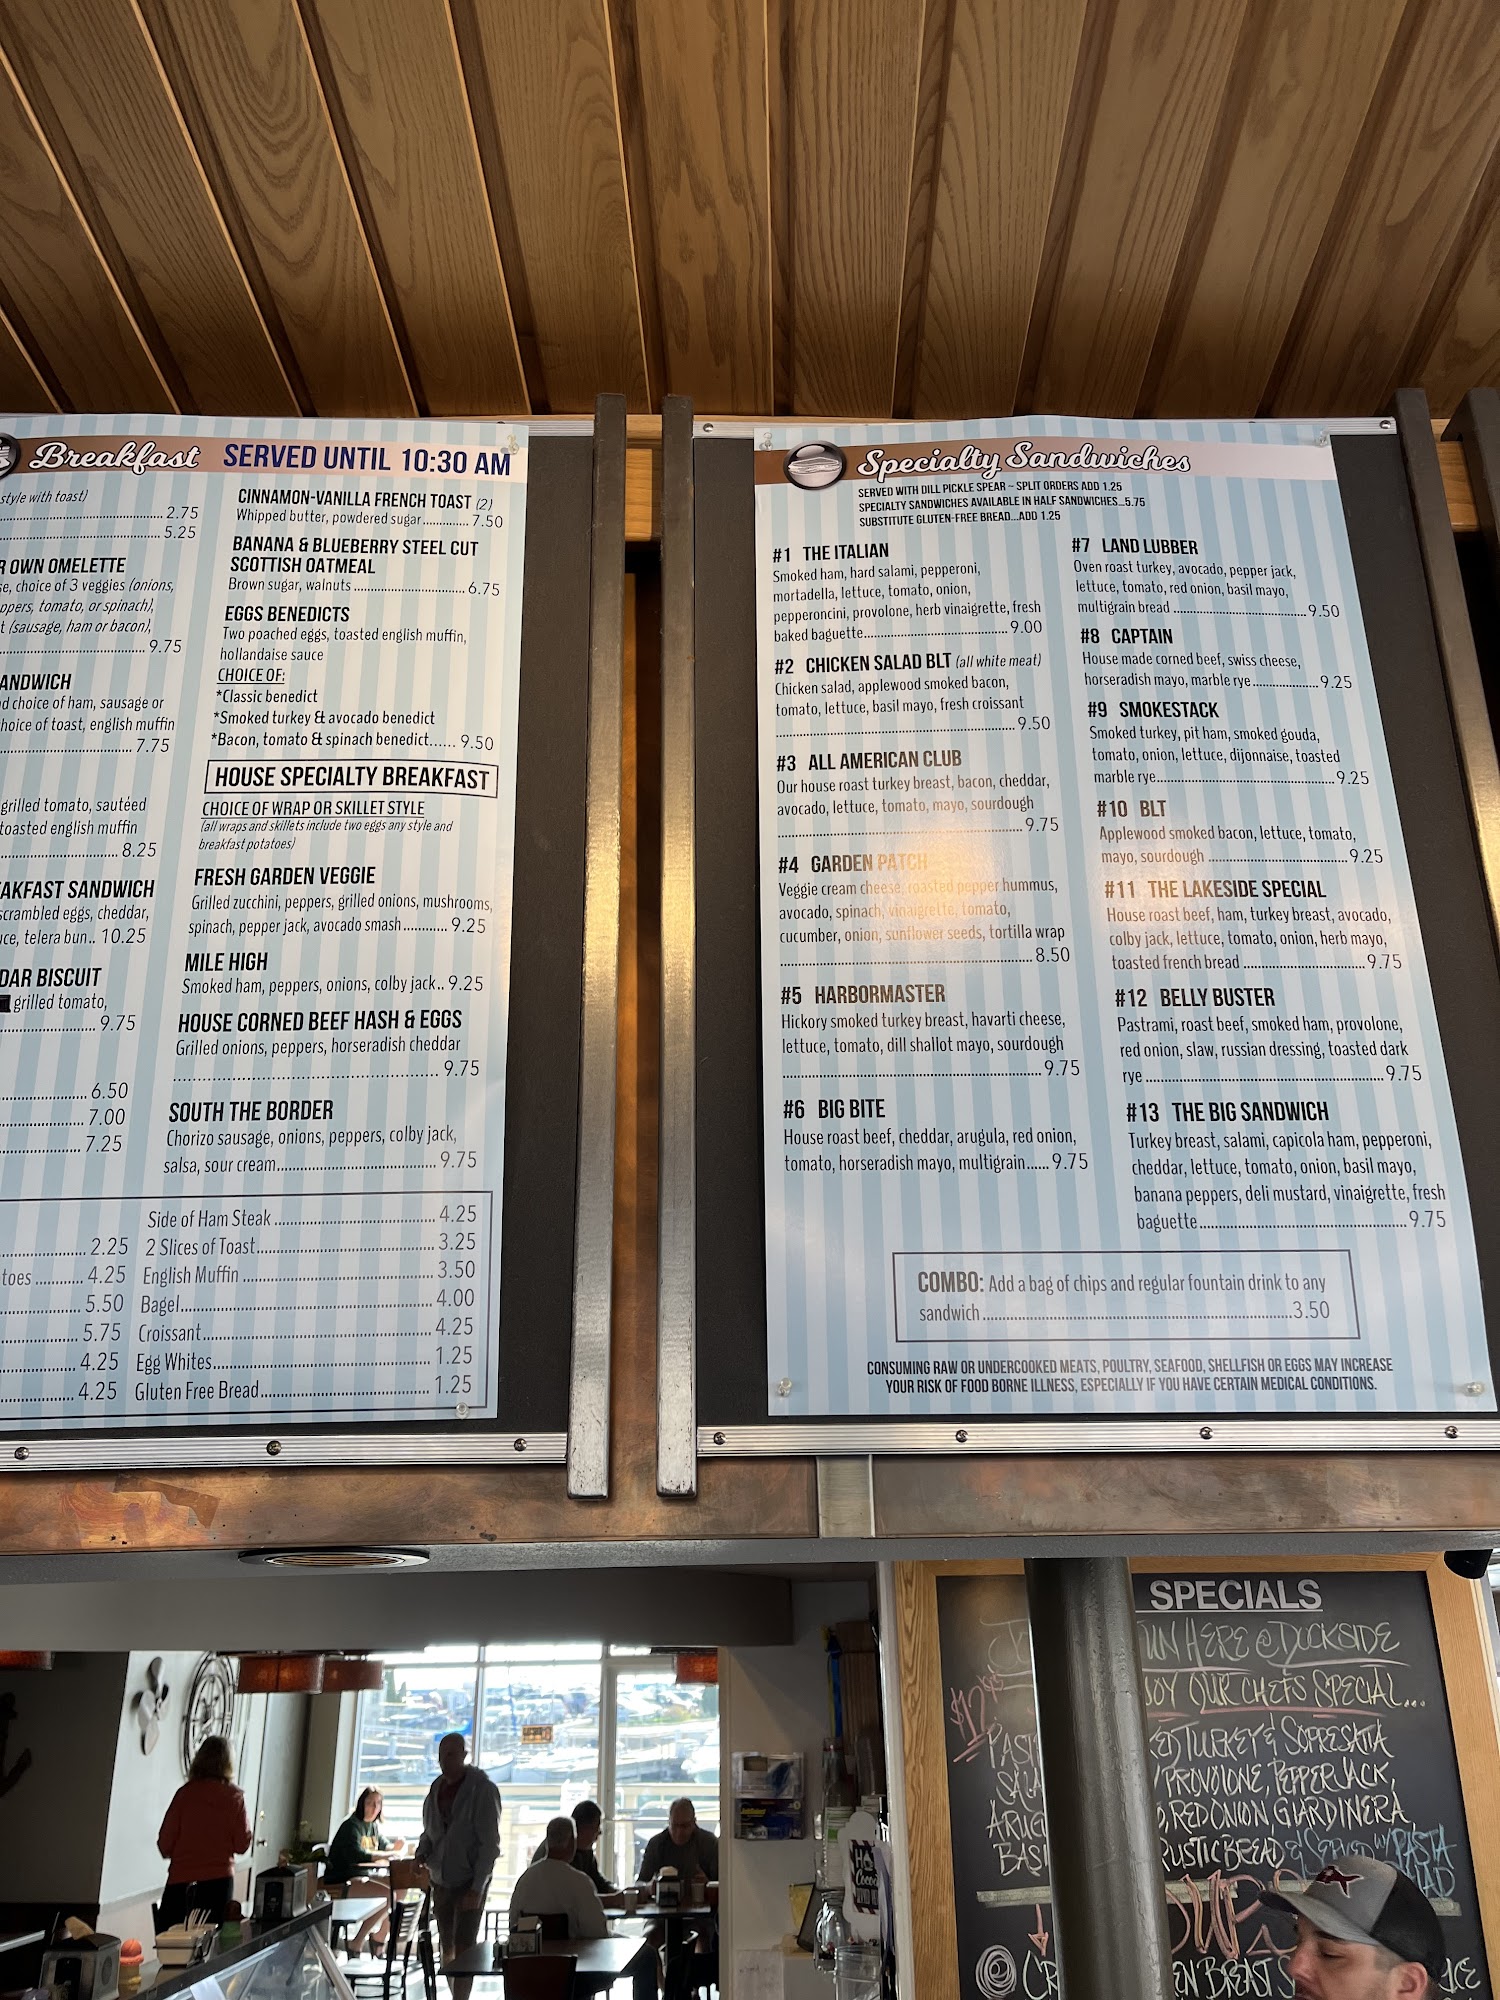 Breakfast SERVED UNTIL 10:30 AM
style with toast)
2.75
5.25
R OWN OMELETTE
se, choice of 3 veggies (onions,
ppers, tomato, or spinach),
t (sausage, ham or bacon),
9.75
ANDWICH
d choice of ham, sausage or
hoice of toast, english muffin
7.75
grilled tomato, sautéed
toasted english muffin
8.25
AKFAST SANDWICH
scrambled eggs, cheddar,
uce, telera bun.. 10.25
DAR BISCUIT
grilled tomato,
9.75
6.50
7.00
7.25
CINNAMON-VANILLA FRENCH TOAST (2)
Whipped butter, powdered sugar.............7.50
BANANA & BLUEBERRY STEEL CUT
SCOTTISH OATMEAL
Brown sugar, walnuts ................................6.75
EGGS BENEDICTS
Two poached eggs, toasted english muffin,
hollandaise sauce
CHOICE OF:
*Classic benedict
*Smoked turkey & avocado benedict
*Bacon, tomato & spinach benedict...... 9.50
HOUSE SPECIALTY BREAKFAST
CHOICE OF WRAP OR SKILLET STYLE
(all wraps and skillets include two eggs any style and
breakfast potatoes)
FRESH GARDEN VEGGIE
Grilled zucchini, peppers, grilled onions, mushrooms,
spinach, pepper jack, avocado smash............ 9.25
MILE HIGH
Smoked ham, peppers, onions, colby jack.. 9.25
HOUSE CORNED BEEF HASH & EGGS
Grilled onions, peppers, horseradish cheddar
9.75
SOUTH THE BORDER
Chorizo sausage, onions, peppers, colby jack,
salsa, sour cream.....................................9.75
2.25
toes ............ 4.25
5.50
5.75
4.25
4.25
Side of Ham Steak ....................................4.25
2 Slices of Toast.......................................3.25
English Muffin .........................................3.50
Bagel.......................................................4.00
Croissant.................................................4.25
Egg Whites..............................................1.25
Gluten Free Bread....................................1.25
Specialty Sandwiches
SERVED WITH DILL PICKLE SPEAR ~ SPLIT ORDERS ADD 1.25
SPECIALTY SANDWICHES AVAILABLE IN HALF SANDWICHES...5.75
SUBSTITUTE GLUTEN-FREE BREAD...ADD 1.25
#1 THE ITALIAN
Smoked ham, hard salami, pepperoni,
mortadella, lettuce, tomato, onion,
pepperoncini, provolone, herb vinaigrette, fresh
baked baguette........................................9.00
#2 CHICKEN SALAD BLT (all white meat)
Chicken salad, applewood smoked bacon,
tomato, lettuce, basil mayo, fresh croissant
9.50
#3 ALL AMERICAN CLUB
Our house roast turkey breast, bacon, cheddar,
avocado, lettuce, tomato, mayo, sourdough
9.75
#4 GARDEN PATCH
Veggie cream cheese, roasted pepper hummus,
avocado, spinach, vinaigrette, tomato,
cucumber, onion, sunflower seeds, tortilla wrap
8.50
#5 HARBORMASTER
Hickory smoked turkey breast, havarti cheese,
lettuce, tomato, dill shallot mayo, sourdough
9.75
#6 BIG BITE
House roast beef, cheddar, arugula, red onion,
tomato, horseradish mayo, multigrain......9.75
#7 LAND LUBBER
Oven roast turkey, avocado, pepper jack,
lettuce, tomato, red onion, basil mayo,
multigrain bread ......................................9.50
#8 CAPTAIN
House made corned beef, swiss cheese,
horseradish mayo, marble rye...................9.25
#9 SMOKESTACK
Smoked turkey, pit ham, smoked gouda,
tomato, onion, lettuce, dijonnaise, toasted
marble rye................................................9.25
#10 BLT
Applewood smoked bacon, lettuce, tomato,
mayo, sourdough .....................................9.25
#11 THE LAKESIDE SPECIAL
House roast beef, ham, turkey breast, avocado,
colby jack, lettuce, tomato, onion, herb mayo,
toasted french bread ................................9.75
#12 BELLY BUSTER
Pastrami, roast beef, smoked ham, provolone,
red onion, slaw, russian dressing, toasted dark
rye...........................................................9.75
#13 THE BIG SANDWICH
Turkey breast, salami, capicola ham, pepperoni,
cheddar, lettuce, tomato, onion, basil mayo,
banana peppers, deli mustard, vinaigrette, fresh
baguette..................................................9.75
COMBO: Add a bag of chips and regular fountain drink to any
sandwich ..................................................................3.50
CONSUMING RAW OR UNDERCOOKED MEATS, POULTRY, SEAFOOD, SHELLFISH OR EGGS MAY INCREASE
YOUR RISK OF FOOD BORNE ILLNESS, ESPECIALLY IF YOU HAVE CERTAIN MEDICAL CONDITIONS.
SPECIALS
UN HERE @ DOCKSIDE
JOY OUR CHEFS SPECIAL...
$12.95
PAST ED TURKEY & SOPRESATTA
SALA PROVOLONE, PEPPER JACK,
ARUG RED ONION, GIARDINERA,
BASI RUSTIC BREAD & SERVED W/ PASTA
AD